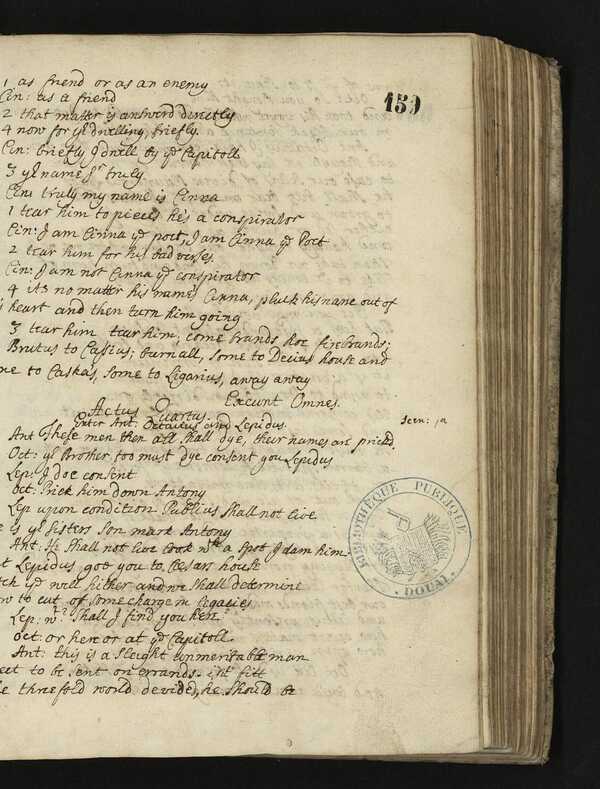 159
1 as friend or as an enemy
Cin: as a friend
2 that matter is answerd directly
4 now for yr dwelling, briefly.
Cin: briefly I dwell by ye Capitoll
3 yr name sr truly.
Cin: truly my name is Cinna
1 tear him to pieces he's a conspirator
Cin: I am Cinna ye poet, I am Cinna ye Poet
2 tear him for his bad verses.
Cin: I am not Cinna ye conspirator
4 its no matter his name's Cinna, pluck his name out of
heart and then turn him going
3 tear him tear him, come brands hoe firebrands;
Brutus to Cassius; burn all, some to Decius house and
to Caska's, some to Ligarius, away away
Exeunt Omnes.
Actus Quartus.
Enter Ant: Octavius and Lepidus. Scen: 1a
Ant These men then all shall dye, their names are prickd
Oct: yr Brother too must dye consent you Lepidus
Lep: I doe consent
Oct: Prick him down Antony
Lep upon condition Publius shall not live
is yr sisters Son mark Antony
Ant: He shall not live look wth a spot I dam him
Lepidus, goe you to Cesars house
ye will hither and we shall determine
to cut of some charge in legacies
Lep: wt shall I find you here
Oct: or here or at ye Capitoll
Ant: this is a sleight unmeritable man
to be sent on errands. ist fitt
threefold world devided, he should be
BIBLIOTHÈQUE PUBLIQUE
DOUAI